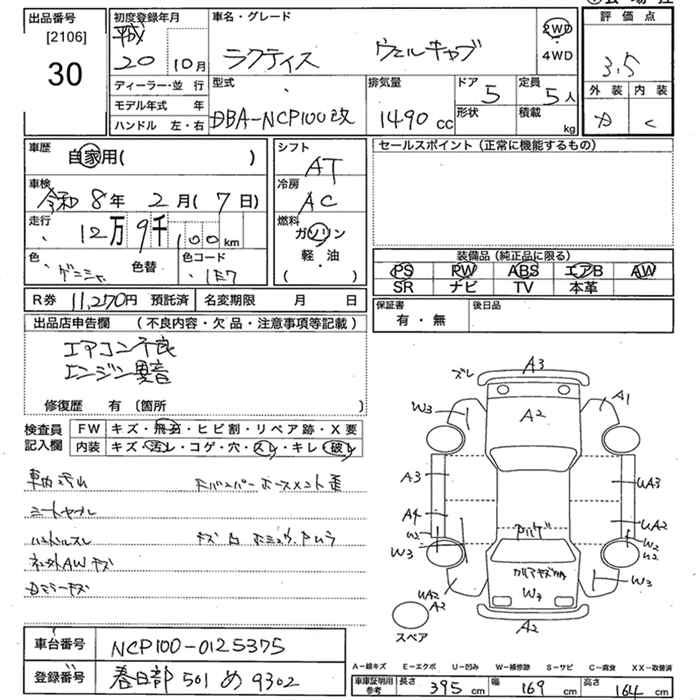 出品番号
[2106]
30
初度登録年月
平成
20 10月
ディーラー・並 行
モデル年式 年
ハンドル 左・右
車名・グレード
ラクティス ウェルキャブ
2WD
・
4WD
型式
DBA-NCP100改
排気量
1490 cc
ドア 5
形状
定員 5人
積載 kg
評価点
3.5
外装 内装
C
車歴
自家用( )
車検
令和 8年 2月(7日)
走行
12万9千100km
色
色替
色コード
1E7
R券 11,270円 預託済 名変期限 月 日
シフト
AT
冷房
AC
燃料
ガソリン
軽・油
( )
セールスポイント(正常に機能するもの)
装備品(純正品に限る)
PS PW ABS エアB AW
SR ナビ TV 本革
保証書
有・無
後日品
出品店申告欄 (不良内容・欠品・注意事項等記載)
エアコン不良
エンジン異音
修復歴 有 〔箇所 〕
検査員
記入欄
FW キズ・無・ヒビ割・リペア跡・X要
内装 キズ・汚レ・コゲ・穴・スレ・キレ・破レ
ズレ A3
W3 A2 A1
A3 UA3
A4 UA2
W3 W2
W3
UA2
A2 W3 A2
スペア
車台番号 NCP100-0125375
登録番号 春日部 501 め 9302
A-線キズ E-エクボ U-凹み W-補修跡 S-サビ C-腐食 XX-改替済
車庫証明用
参考
長さ 395 cm 幅 169 cm 高さ 164 cm